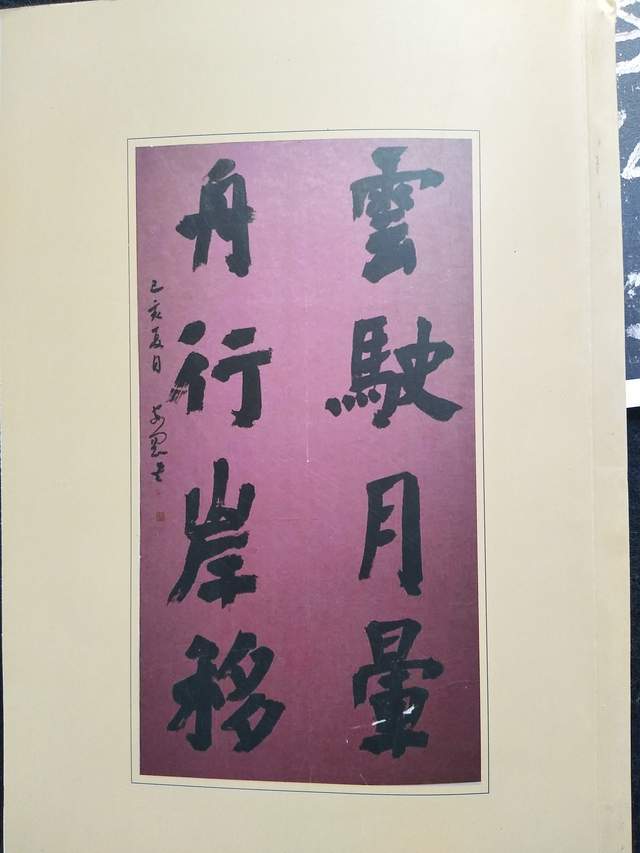 雲駛月暈
舟行岸移
己亥夏日